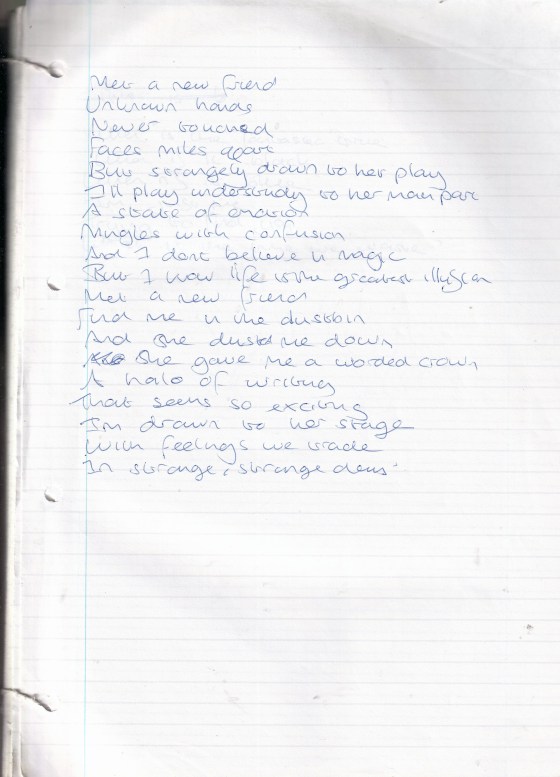 Met a new friend
Unknown hands
Never touched
Faces miles apart
But strangely drawn to her play
I'll play understudy to her main part
A state of emotion
Mingles with confusion
And I dont believe in magic
But I know life is the greatest illusion
Met a new friend
Find me in the dustbin
And she dusted me down
She gave me a worded crown
A halo of writing
That seems so exciting
I'm drawn to her stage
With feelings we trade
In strange, strange